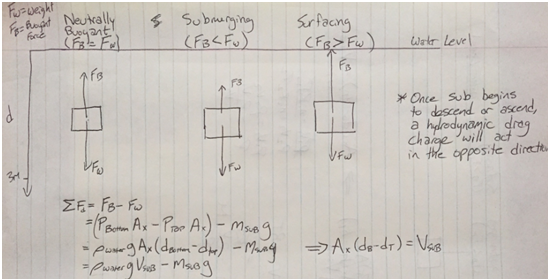 Fw=Weight
FB=Buoyant Force
Neutrally Buoyant (FB=Fw)
&
Submerging (FB<Fw)
Surfacing (FB>Fw)
Water Level
FB
FB
FB
d
3m
Fw
Fw
Fw
* Once sub begins
to descend or ascend,
a hydrodynamic drag
charge will act
in the opposite direction
ΣF⊥ = FB - Fw
= (PBottom Ax - PTop Ax) - mSUB g
= ρwater g Ax (dBottom - dtop) - mSUB g
= ρwater g VSUB - mSUB g
⇒ Ax (dB - dT) = VSUB